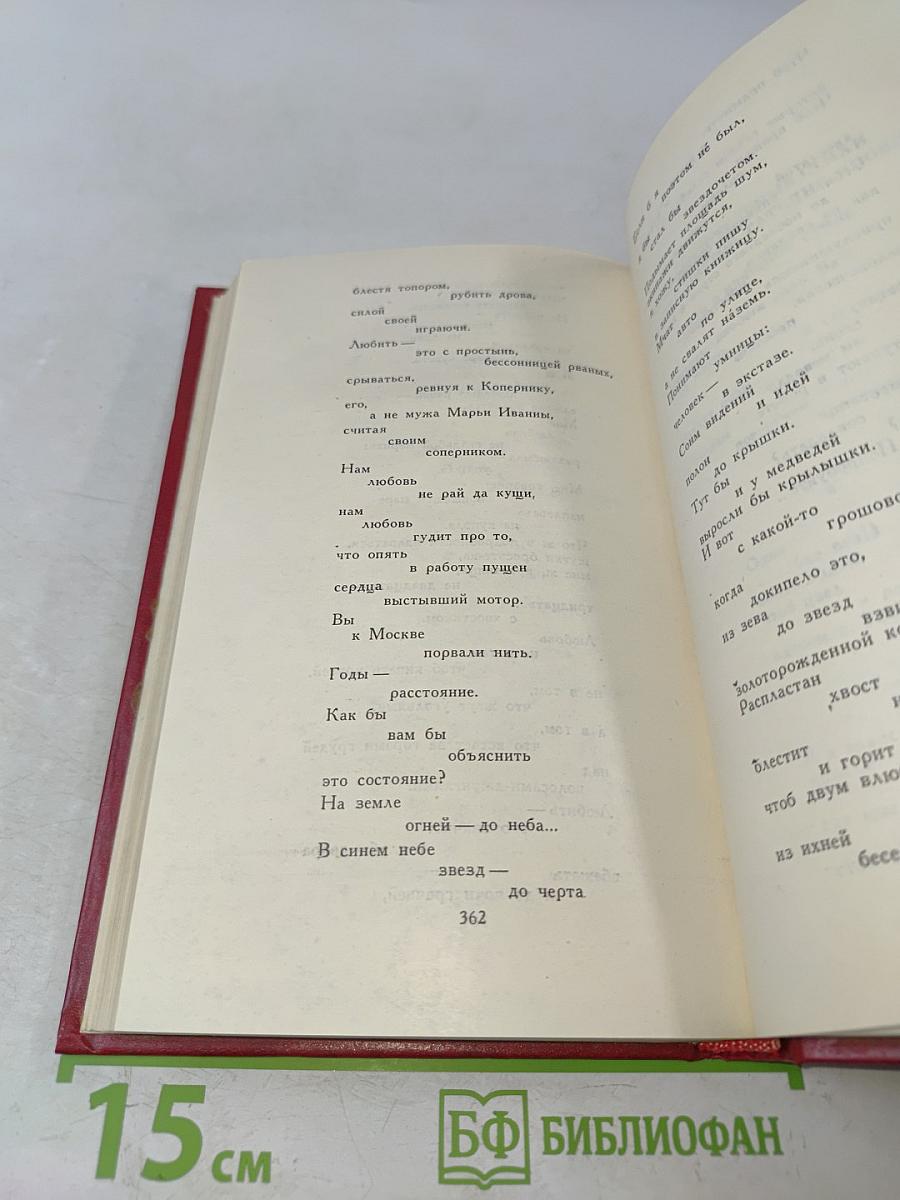 блестя топором,
рубить дрова,
силой
своей
играючи.
Любить —
это с простынь,
бессонницей рваных,
срываться,
ревнуя к Копернику,
его,
а не мужа Марьи Иванны,
считая
своим
соперником.
Нам
любовь
не рай да кущи,
нам
любовь
гудит про то,
что опять
в работу пущен
сердца
выстывший мотор.
Вы
к Москве
порвали нить.
Годы —
расстояние.
Как бы
вам бы
объяснить
это состояние?
На земле
огней — до неба...
В синем небе
звезд —
до черта.
362
б я
поэтом не́ был,
я бы
стал бы
звездочетом.
Подымает площадь шум,
экипажи движутся,
я хожу,
стишки пишу
в записную книжицу.
Мчат
авто
по улице,
а не свалят на́земь.
Понимают
умницы:
человек —
в экстазе.
Сонм видений
и идей
полон
до крышки.
Тут бы
и у медведей
выросли бы крылышки.
И вот
с какой-то
грошово
когда
докипело это,
из зева
до звезд
взви
золоторожденной ко
Распластан
хвост
блестит
и горит
чтоб двум влю
из ихней
бесе
15 см
БФ БИБЛИОФАН